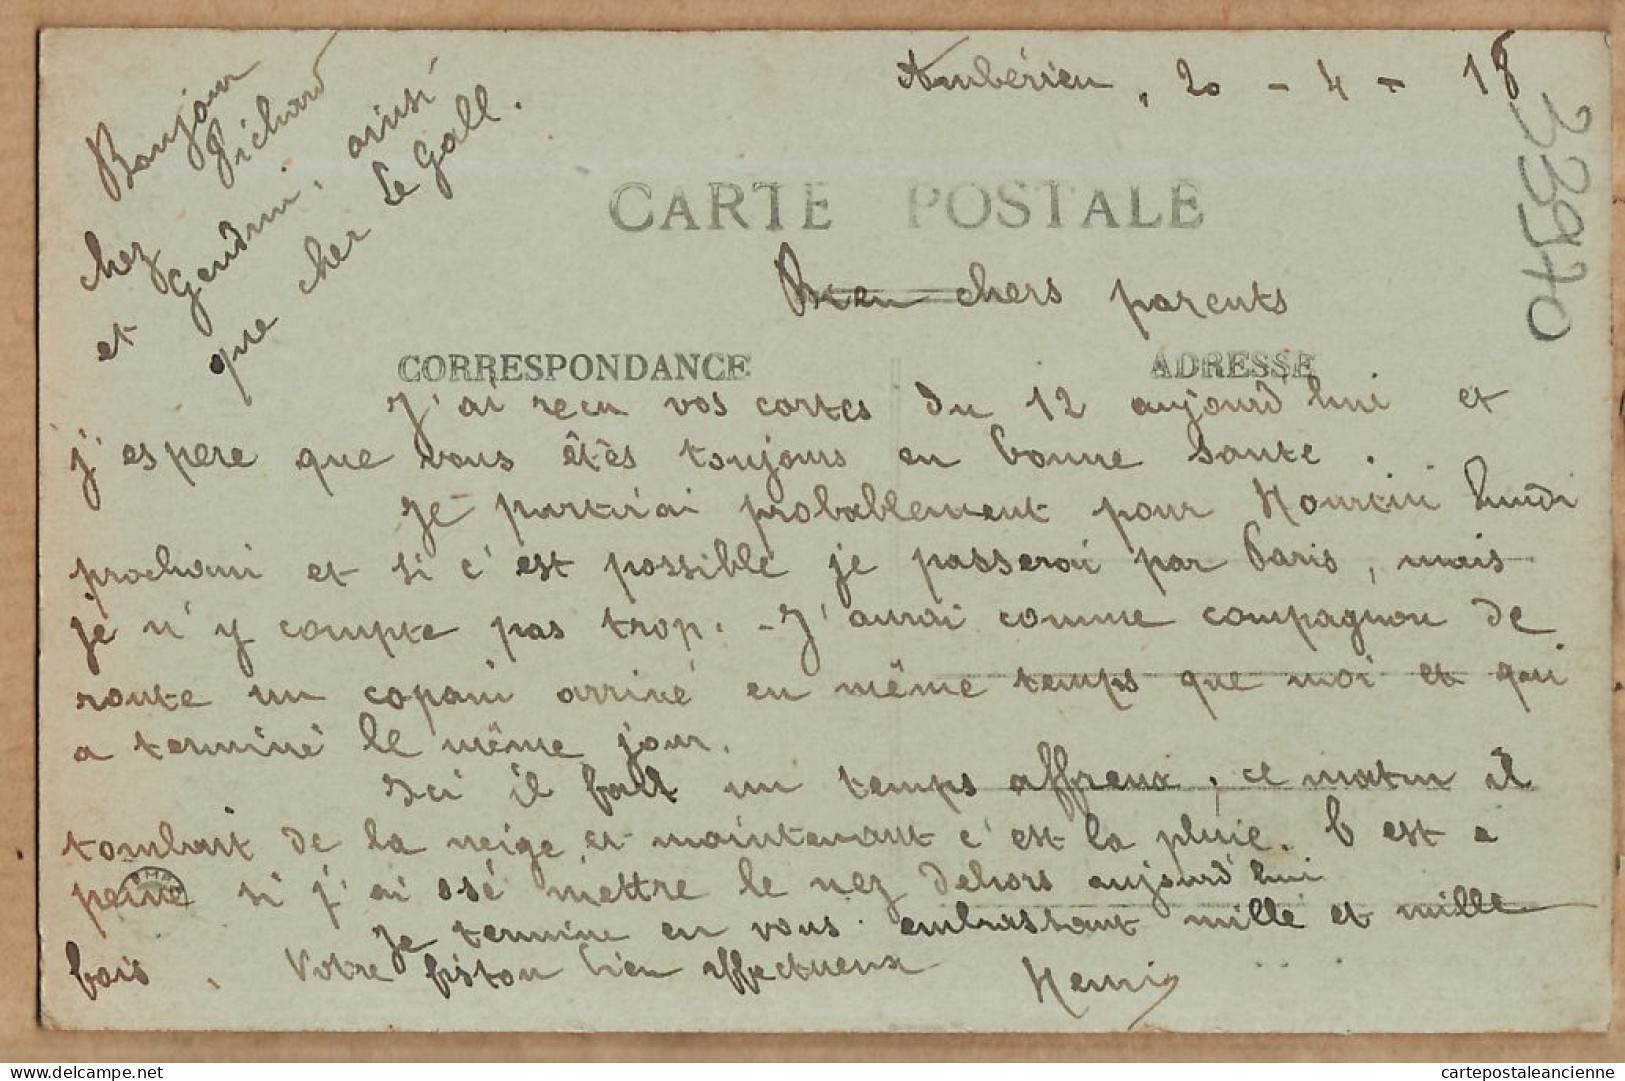 Ambérieu, 20 - 4 - 18
33970
Bonjour
chez Pichard
et Gendrin, ainsi
que chez Le Gall.
CARTE POSTALE
Bien chers parents
CORRESPONDANCE ADRESSE
J'ai recu vos cartes du 12 aujourd'hui et
j'espere que vous êtês toujours en bonne sante.
Je partirai probablement pour Hourtin lundi
prochain et si c'est possible je passerai par Paris, mais
je n'y compte pas trop. - J'aurai comme compagnon de
route un copain arrivé en même temps que moi et qui
a terminé le même jour.
Ici il fait un temps affreux, ce matin il
tombait de la neige et maintenant c'est la pluie. C'est a
peine si j'ai osé mettre le nez dehors aujourd'hui
Je termine en vous embrassant mille et mille
fois. Votre fiston bien affectueux Henri
delcampe.net cartepostaleancienne